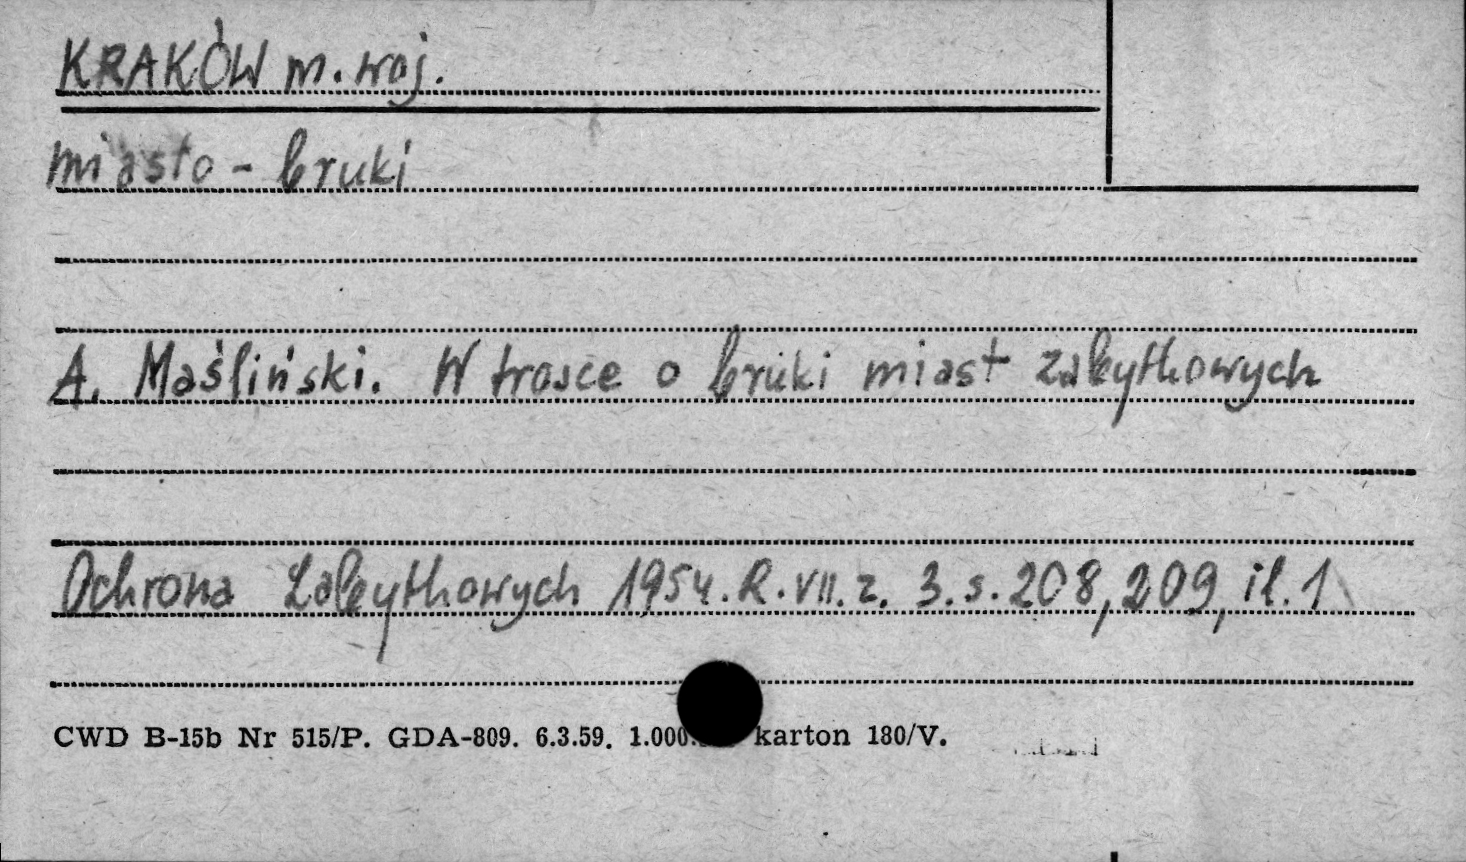 KRAKÓW m. woj.
miasto - bruki
A. Maśliński. W trosce o bruki miast zabytkowych
Ochrona Zabytkowych 1954. R. VII. z. 3. s. 208, 209, il. 1
CWD B-15b Nr 515/P. GDA-809. 6.3.59. 1.000. karton 180/V.